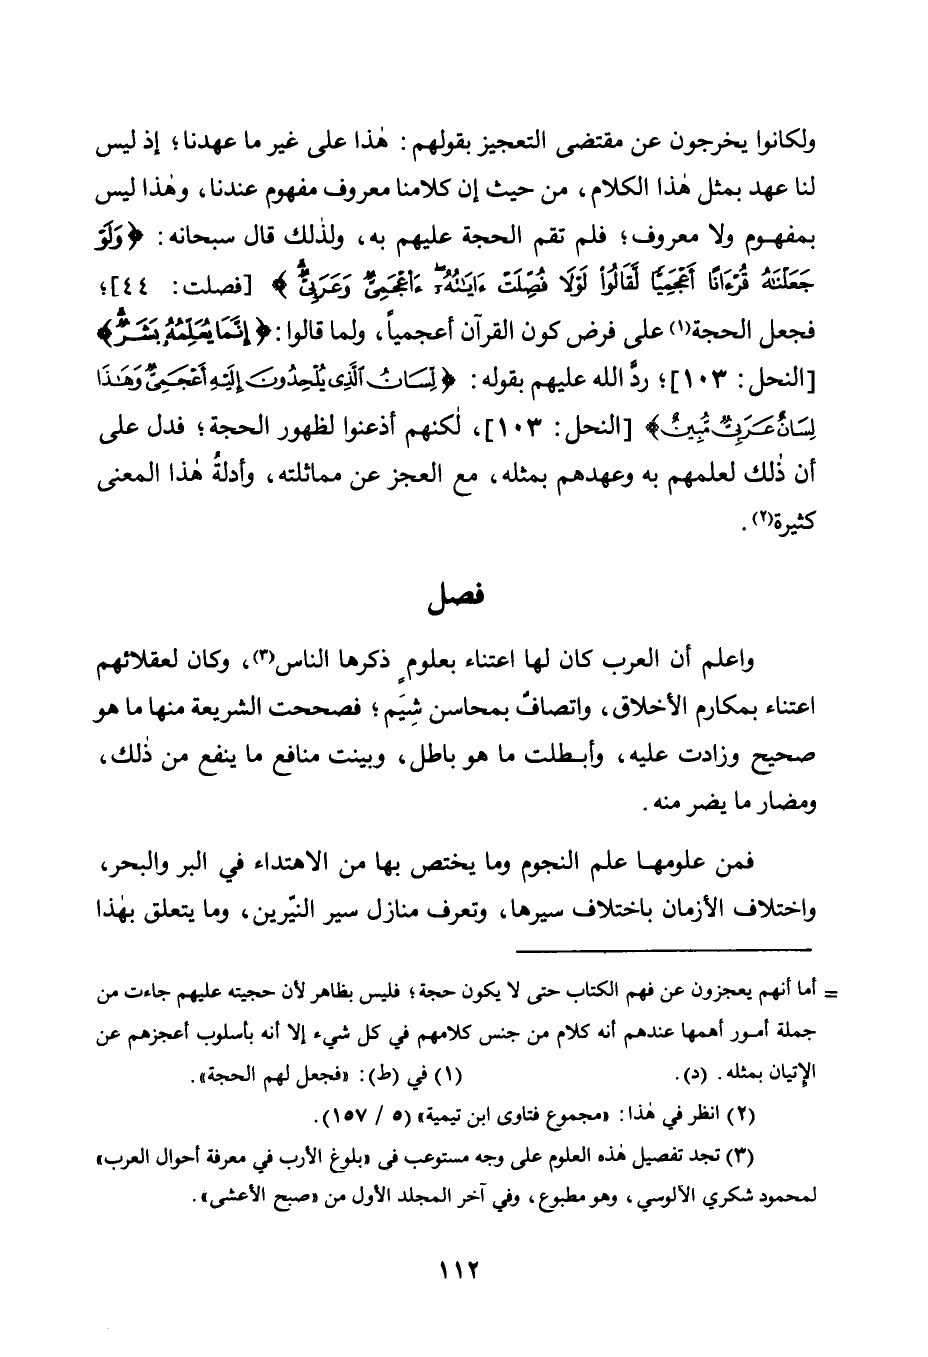 ولكانوا يخرجون عن مقتضى التعجيز بقولهم: هٰذا على غير ما عهدنا؛ إذ ليس
لنا عهد بمثل هٰذا الكلام، من حيث إن كلامنا معروف مفهوم عندنا، وهٰذا ليس
بمفهوم ولا معروف؛ فلم تقم الحجة عليهم به، ولذٰلك قال سبحانه: ﴿وَلَوْ
جَعَلْنَٰهُ قُرْءَانًا أَعْجَمِيًّا لَّقَالُوا۟ لَوْلَا فُصِّلَتْ ءَايَٰتُهُۥٓ ءَا۬عْجَمِىٌّ وَعَرَبِىٌّ﴾ [فصلت: ٤٤]؛
فجعل الحجة(١) على فرض كون القرآن أعجمياً، ولما قالوا: ﴿إِنَّمَا يُعَلِّمُهُۥ بَشَرٌ﴾
[النحل: ١٠٣]؛ ردَّ الله عليهم بقوله: ﴿لِّسَانُ ٱلَّذِى يُلْحِدُونَ إِلَيْهِ أَعْجَمِىٌّ وَهَٰذَا
لِسَانٌ عَرَبِىٌّ مُّبِينٌ﴾ [النحل: ١٠٣]، لٰكنهم أذعنوا لظهور الحجة؛ فدل على
أن ذٰلك لعلمهم به وعهدهم بمثله، مع العجز عن مماثلته، وأدلةُ هٰذا المعنى
كثيرة(٢).
فصل
واعلم أن العرب كان لها اعتناء بعلومٍ ذكرها الناس(٣)، وكان لعقلائهم
اعتناء بمكارم الأخلاق، واتصافٌ بمحاسن شِيَم؛ فصححت الشريعة منها ما هو
صحيح وزادت عليه، وأبطلت ما هو باطل، وبينت منافع ما ينفع من ذٰلك،
ومضار ما يضر منه.
فمن علومها علم النجوم وما يختص بها من الاهتداء في البر والبحر،
واختلاف الأزمان باختلاف سيرها، وتعرف منازل سير النيّرين، وما يتعلق بهٰذا
= أما أنهم يعجزون عن فهم الكتاب حتى لا يكون حجة؛ فليس بظاهر لأن حجيته عليهم جاءت من
جملة أمور أهمها عندهم أنه كلام من جنس كلامهم في كل شيء إلا أنه بأسلوب أعجزهم عن
الإتيان بمثله. (د). (١) في (ط): «فجعل لهم الحجة».
(٢) انظر في هٰذا: «مجموع فتاوى ابن تيمية» (٥ / ١٥٧).
(٣) تجد تفصيل هٰذه العلوم على وجه مستوعب فى «بلوغ الأرب في معرفة أحوال العرب»
لمحمود شكري الآلوسي، وهو مطبوع، وفي آخر المجلد الأول من «صبح الأعشى».
١١٢